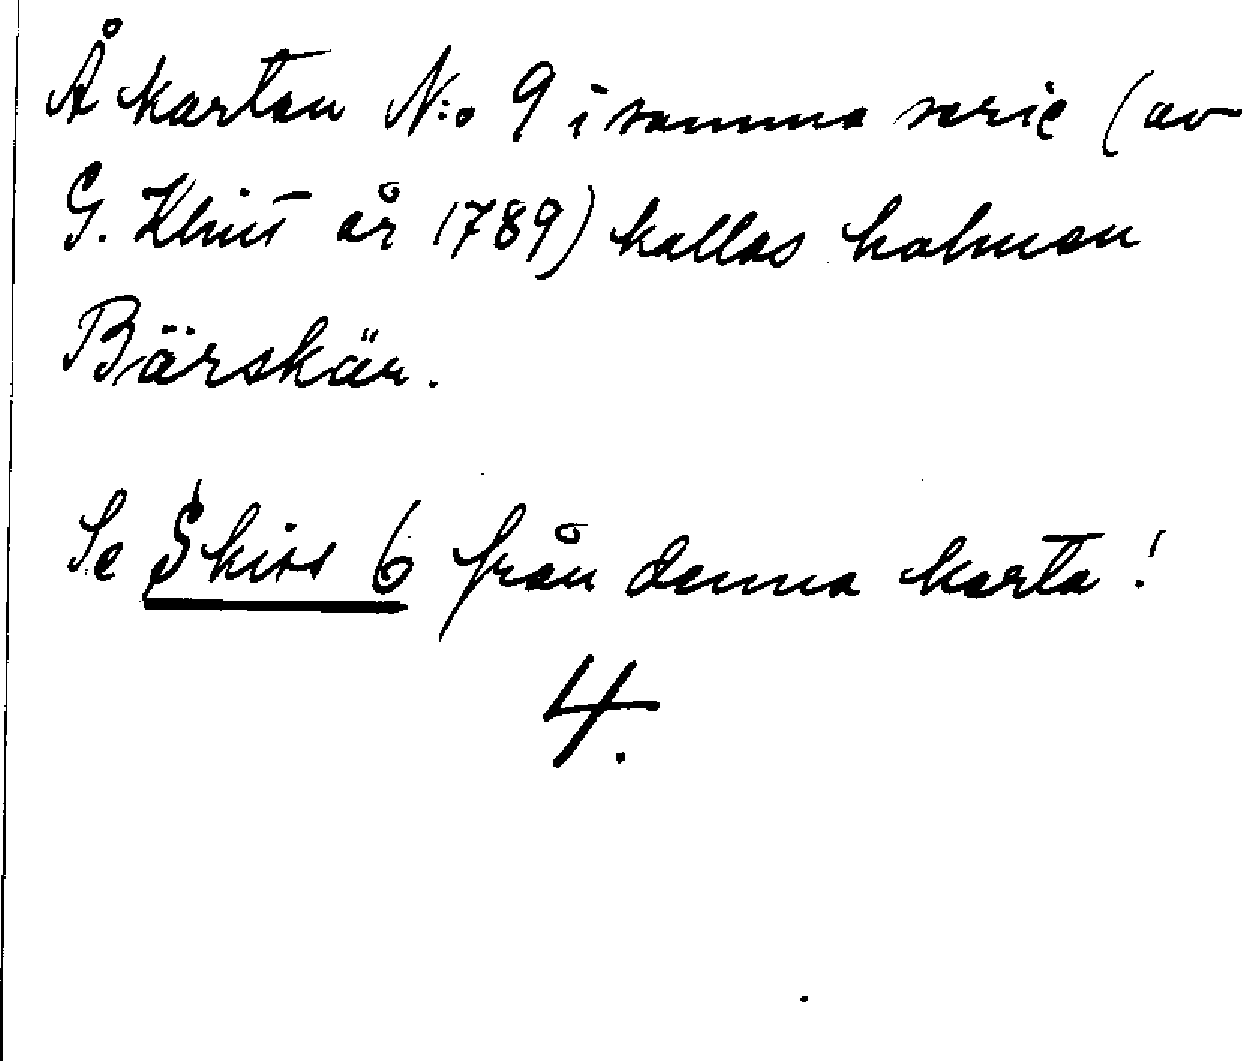 Å kartan N:o 9 i samma serie (av
G. Klint år 1789) kallas holmen
Bärskär.
Se Skiss 6 från denna karta!
4.